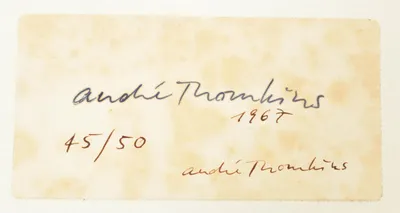 andré Thomkins
1967
45/50
andré Thomkins